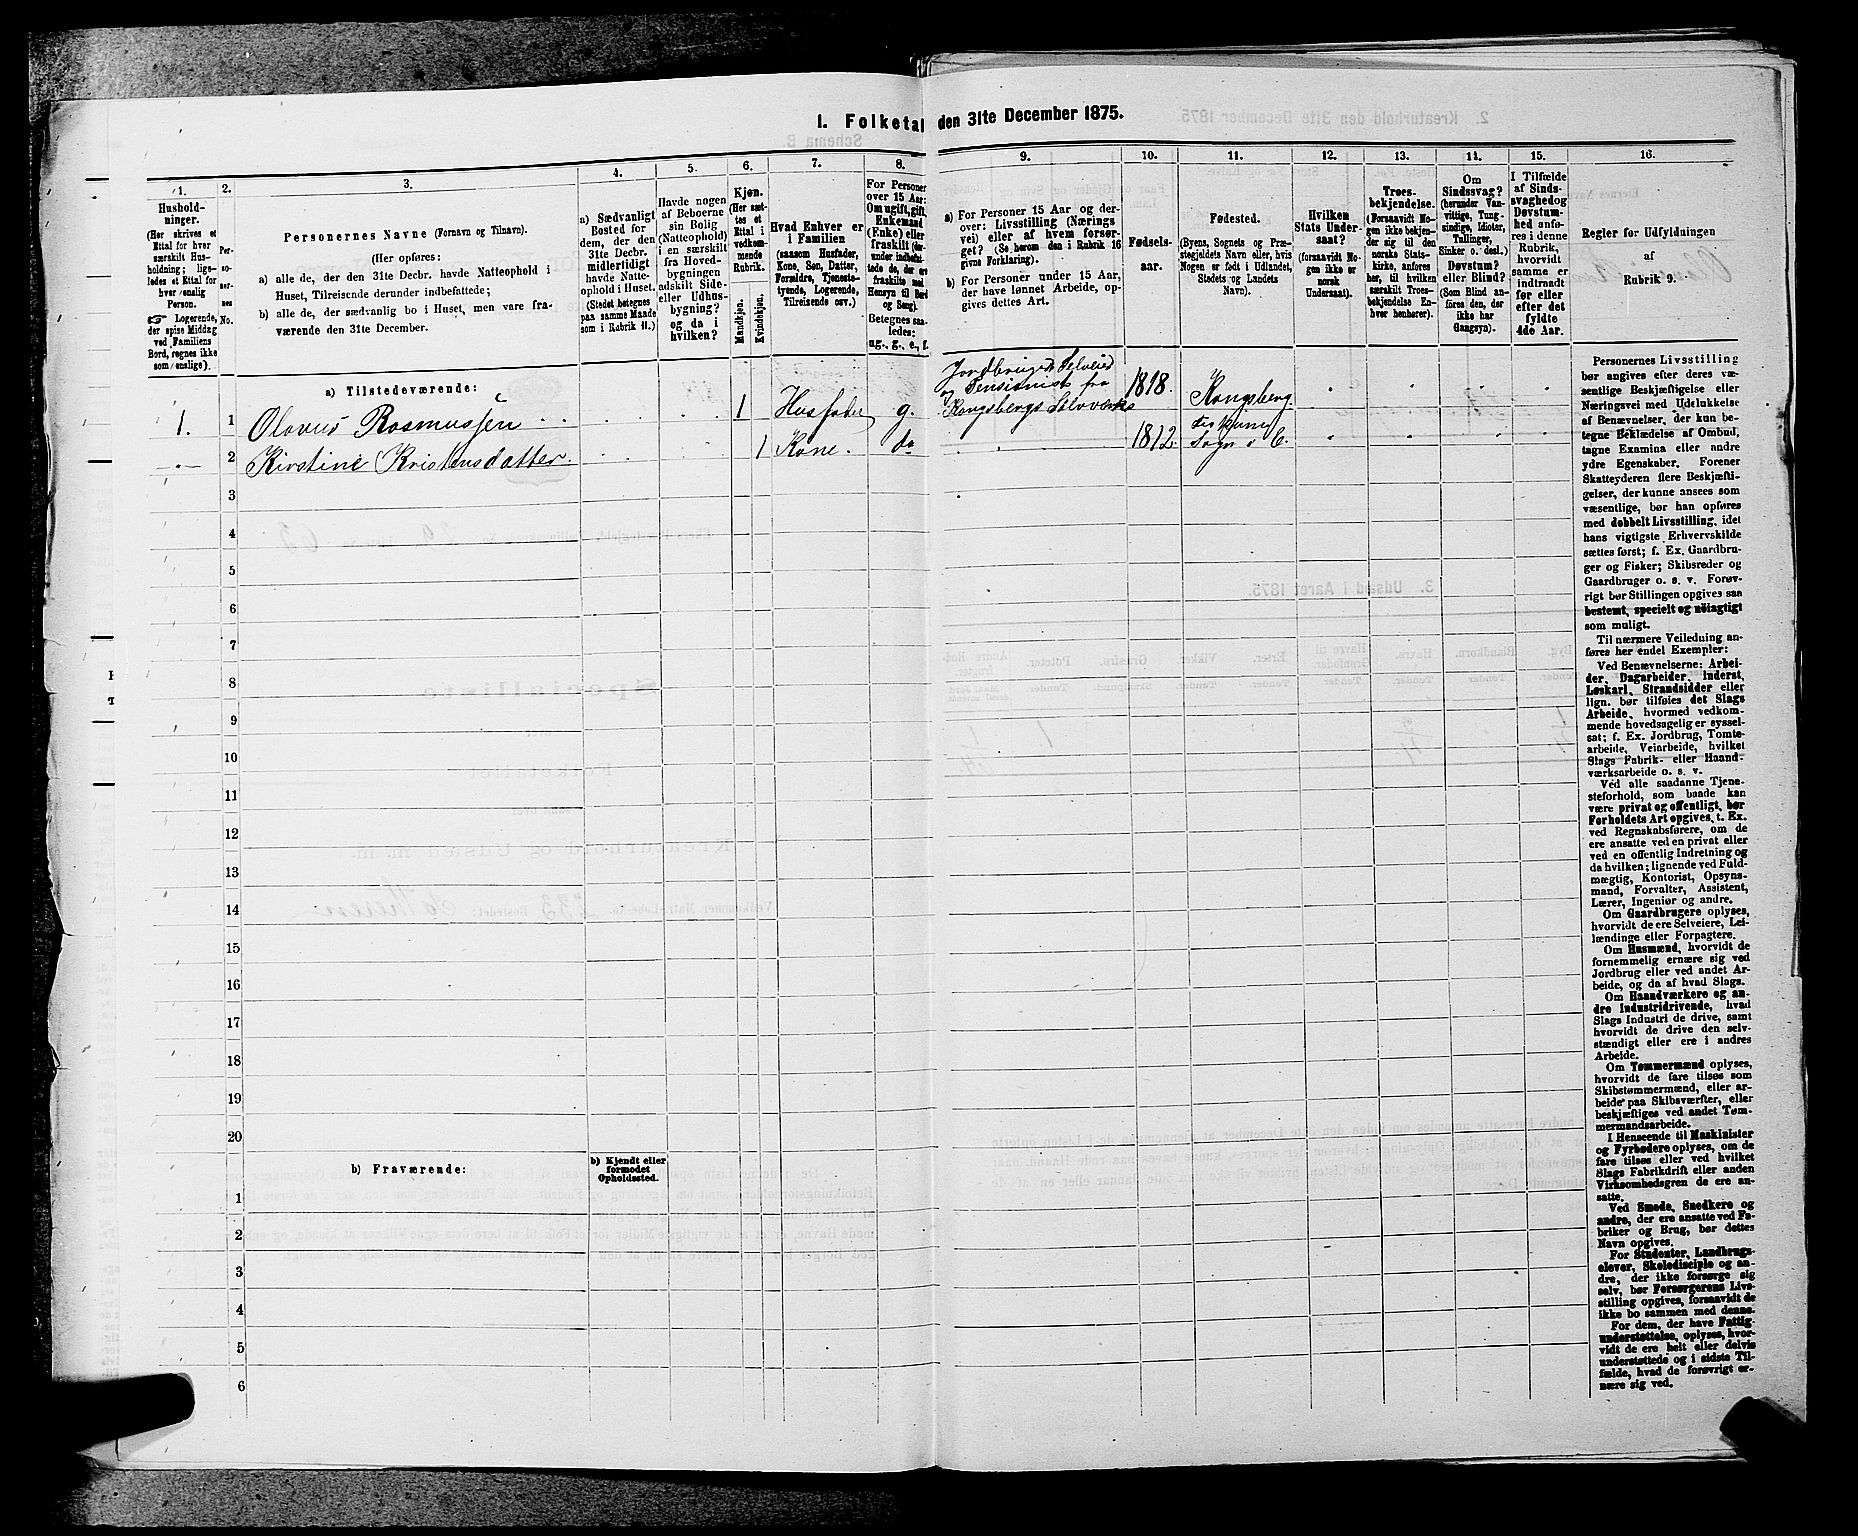 1. Folketal den 31te December 1875.
1.
2.
3.
4.
5.
6.
7.
8.
9.
10.
11.
12.
13.
14.
15.
16.
Hushold-
ninger.
(Her skrives et
Ettal for hver
særskilt Hus-
holdning; lige-
ledes et Ettal for
hver enslig
Person.
☞ Logerende,
der spise Middag
ved Familiens
Bord, regnes ikke
som enslige).
Per-
so-
ner-
nes
No.
Personernes Navne (Fornavn og Tilnavn).
(Her opføres:
a) alle de, der den 31te Decbr. havde Natteophold i
Huset, Tilreisende derunder indbefattede;
b) alle de, der sædvanlig bo i Huset, men vare fra-
værende den 31te December.
a) Sædvanligt
Bosted for
dem, der den
31te Decbr.
midlertidigt
havde Natte-
ophold i Huset.
(Stedet betegnes
paa samme Maade
som i Rubrik 11.)
Havde nogen
af Beboerne
sin Bolig
(Natteophold)
i en særskilt
fra Hoved-
bygningen
adskilt Side-
eller Udhus-
bygning?
og da i
hvilken?
Kjøn.
(Her sæt-
tes et
Ettal i
vedkom-
mende
Rubrik.
Mandkjøn.
Kvindekjøn.
Hvad Enhver er
i Familien
(saasom Husfader,
Kone, Søn, Datter,
Forældre, Tjeneste-
tyende, Logerende,
Tilreisende osv.)
For Personer
over 15 Aar:
Om ugift, gift,
Enkemand
(Enke) eller
fraskilt (der-
under indbefat-
tede de, der ere
fraskilte med
Hensyn til Bord
og Seng).
Betegnes saa-
ledes:
ug., g., e., f.
a) For Personer 15 Aar og der-
over: Livsstilling (Nærings
vei) eller af hvem forsør-
get? (Se herom den i Rubrik 16
givne Forklaring).
b) For Personer under 15 Aar,
der have lønnet Arbeide, op-
gives dettes Art.
Fødsels-
aar.
Fødested.
(Byens, Sognets og Præ-
stegjeldets Navn eller, hvis
Nogen er født i Udlandet,
Stedets og Landets
Navn).
Hvilken
Stats Under-
saat?
(forsaavidt No-
gen ikke er
norsk
Undersaat).
Troes-
bekjendelse.
(Forsaavidt No-
gen ikke bekjen-
der sig til den
norske Stats-
kirke, anføres
her, til hvilken
særskilt Troes-
bekjendelse En-
hver henhører).
Om
Sindssvag?
(herunder Van-
vittige, Tung-
sindige, Idioter,
Tullinger,
Sinker o. desl.)
Døvstum?
eller Blind?
(Som Blind an-
føres den, der
ikke har
Gangsyn).
I Tilfælde
af Sinds-
svaghed og
Døvstum-
hed anfø-
res i denne
Rubrik,
hvorvidt
samme er
indtraadt
før eller
efter det
fyldte
4de Aar.
Regler for Udfyldningen
af
Rubrik 9.
a) Tilstedeværende:
Jordbruger Selveier
og Pensionist fra
1. 1 Olavus Rasmussen 1 Husfader g. Kongsbergs Sølvverk 1818. Kongsberg.
-"- 2 Kirstine Kristensdatter 1 Kone. do 1812. Sogn i E.
3
4
5
6
7
8
9
10
11
12
13
14
15
16
17
18
19
20
b) Fraværende:
b) Kjendt eller
formodet
Opholdssted.
1
2
3
4
5
6
Personernes Livsstilling
bør angives efter deres væ-
sentlige Beskjæftigelse eller
Næringsvei med Udelukkelse
af Benævnelser, der kun be-
tegne Beklædelse af Ombud,
tagne Examina eller andre
ydre Egenskaber. Forener
Skatteyderen flere Beskjæfti-
gelser, der kunne ansees som
væsentlige, bør han opføres
med dobbelt Livsstilling, idet
hans vigtigste Erhvervskilde
sættes først; f. Ex. Gaardbru-
ger og Fisker; Skibsreder og
Gaardbruger o. s. v. Forøv-
rigt bør Stillingen opgives saa
bestemt, specielt og nöiagtigt
som muligt.
Til nærmere Veiledning an-
føres her endel Exempler:
Ved Benævnelserne: Arbei-
der, Dagarbeider, Inderst,
Løskarl, Strandsidder eller
lign. bør tilføies det Slags
Arbeide, hvormed vedkom-
mende hovedsagelig er syssel-
sat; f. Ex. Jordbrug, Tomte-
arbeide, Veiarbeide, hvilket
Slags Fabrik- eller Haand-
værksarbeide o. s. v.
Ved alle saadanne Tjene-
steforhold, som baade kan
være privat og offentligt, bør
Forholdets Art opgives, t. Ex.
ved Regnskabsførere, om de
ere ansatte ved en privat eller
ved en offentlig Indretning og
da hvilken; lignende ved Fuld-
mægtig, Kontorist, Opsyns-
mand, Forvalter, Assistent,
Lærer, Ingeniør og andre.
Om Gaardbrugere oplyses,
hvorvidt de ere Selveiere, Lei-
lændinge eller Forpagtere.
Om Husmænd, hvorvidt de
fornemmelig ernære sig ved
Jordbrug eller ved andet Ar-
beide, og da af hvad Slags.
Om Haandværkere og an-
dre Industridrivende, hvad
Slags Industri de drive, samt
hvorvidt de drive den selv-
stændigt eller ere i andres
Arbeide.
Om Tømmermænd oplyses,
hvorvidt de fare tilsøs som
Skibstømmermænd, eller ar-
beide paa Skibsværfter, eller
beskjæftiges ved andet Tøm-
mermandsarbeide.
I Henseende til Maskinister
og Fyrbødere oplyses, om de
fare tilsøs eller ved hvilket
Slags Fabrikdrift eller anden
Virksomhedsgren de ere an-
satte.
Ved Smede, Snedkere og
andre, der ere ansatte ved Fa-
briker og Brug, bør dettes
Navn opgives.
For Studenter, Landbrugs-
elever, Skoledisciple og an-
dre, der ikke forsørge sig
selv, bør Forsørgerens Livs-
stilling opgives, forsaavidt de
ikke bo sammen med denne.
For dem, der have Fattig-
understøttelse, oplyses, hvor-
vidt de ere helt eller delvis
understøttede og i sidste Til-
fælde, hvad de forøvrigt er-
nære sig ved.